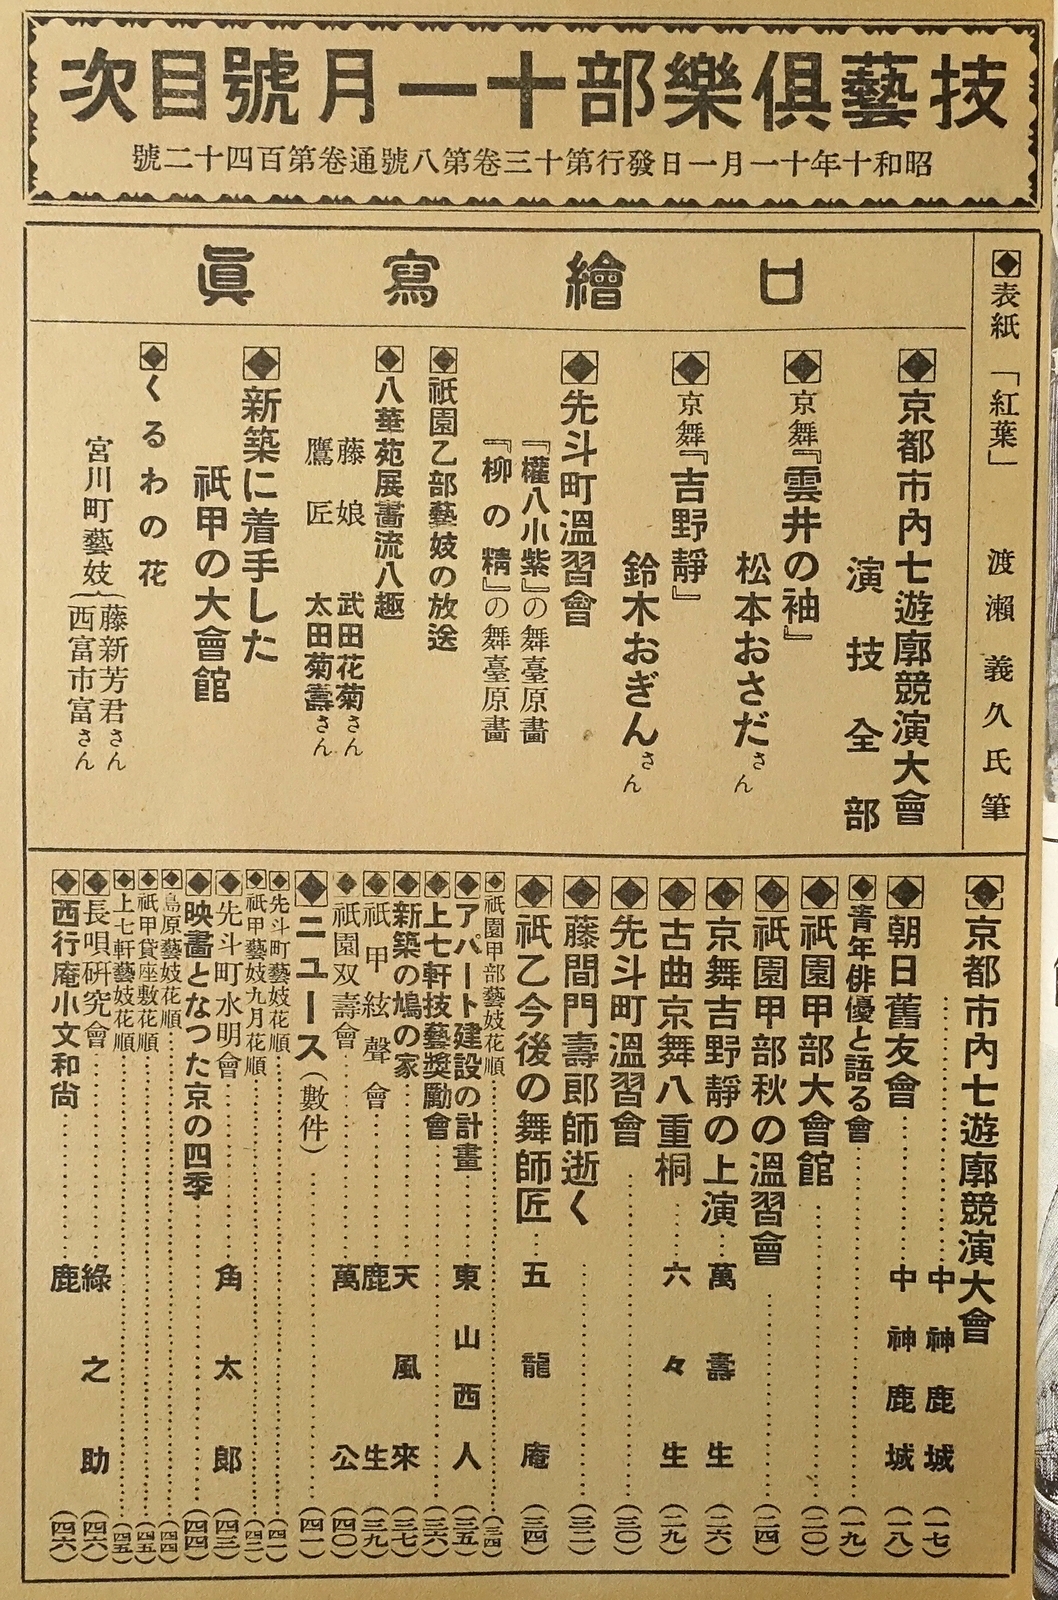 技藝俱樂部十一月號目次
昭和十年十一月一日發行第十三卷第八號通卷第百四十二號
◆表紙「紅葉」 渡瀨義久氏筆
口繪寫眞
◆京都市內七遊廓競演大會
演技全部
◆京舞『雲井の袖』
松本おさださん
◆京舞『吉野靜』
鈴木おぎんさん
◆先斗町溫習會
『權八小紫』の舞臺原畵
『柳の精』の舞臺原畵
◆祇園乙部藝妓の放送
◆八華苑展畵流八趣
藤娘 武田花菊さん
鷹匠 太田菊壽さん
◆新築に着手した
祇甲の大會館
◆くるわの花
宮川町藝妓{藤新芳君さん
西富市富さん
◆京都市內七遊廓競演大會
……中神鹿城(一七)
◆朝日舊友會……中神鹿城(一八)
◆青年俳優と語る會……(一九)
◆祇園甲部大會館……(二〇)
◆祇園甲部秋の溫習會……(二四)
◆京舞吉野靜の上演……萬壽生(二六)
◆古曲京舞八重桐……六々生(二九)
◆先斗町溫習會……(三〇)
◆藤間門壽郎師逝く……(三二)
◆祇乙今後の舞師匠……五龍庵(三四)
◆祇園甲部藝妓花順……(三四)
◆アパート建設の計畫……東山西人(三五)
◆上七軒技藝獎勵會……(三六)
◆新築の鳩の家……天風來(三七)
◆祇甲絃聲會……鹿生(三九)
◆祇園双壽會……萬公(四〇)
◆ニュース(數件)……(四一)
◆先斗町藝妓花順……(四一)
◆祇甲藝妓九月花順……(四二)
◆先斗町水明會……角太郎(四三)
◆映畫となつた京の四季……(四四)
◆島原藝妓花順……(四四)
◆祇甲貸座敷花順……(四五)
◆上七軒藝妓花順……(四五)
◆長唄硏究會……綠之助(四六)
◆西行庵小文和尚……鹿(四六)